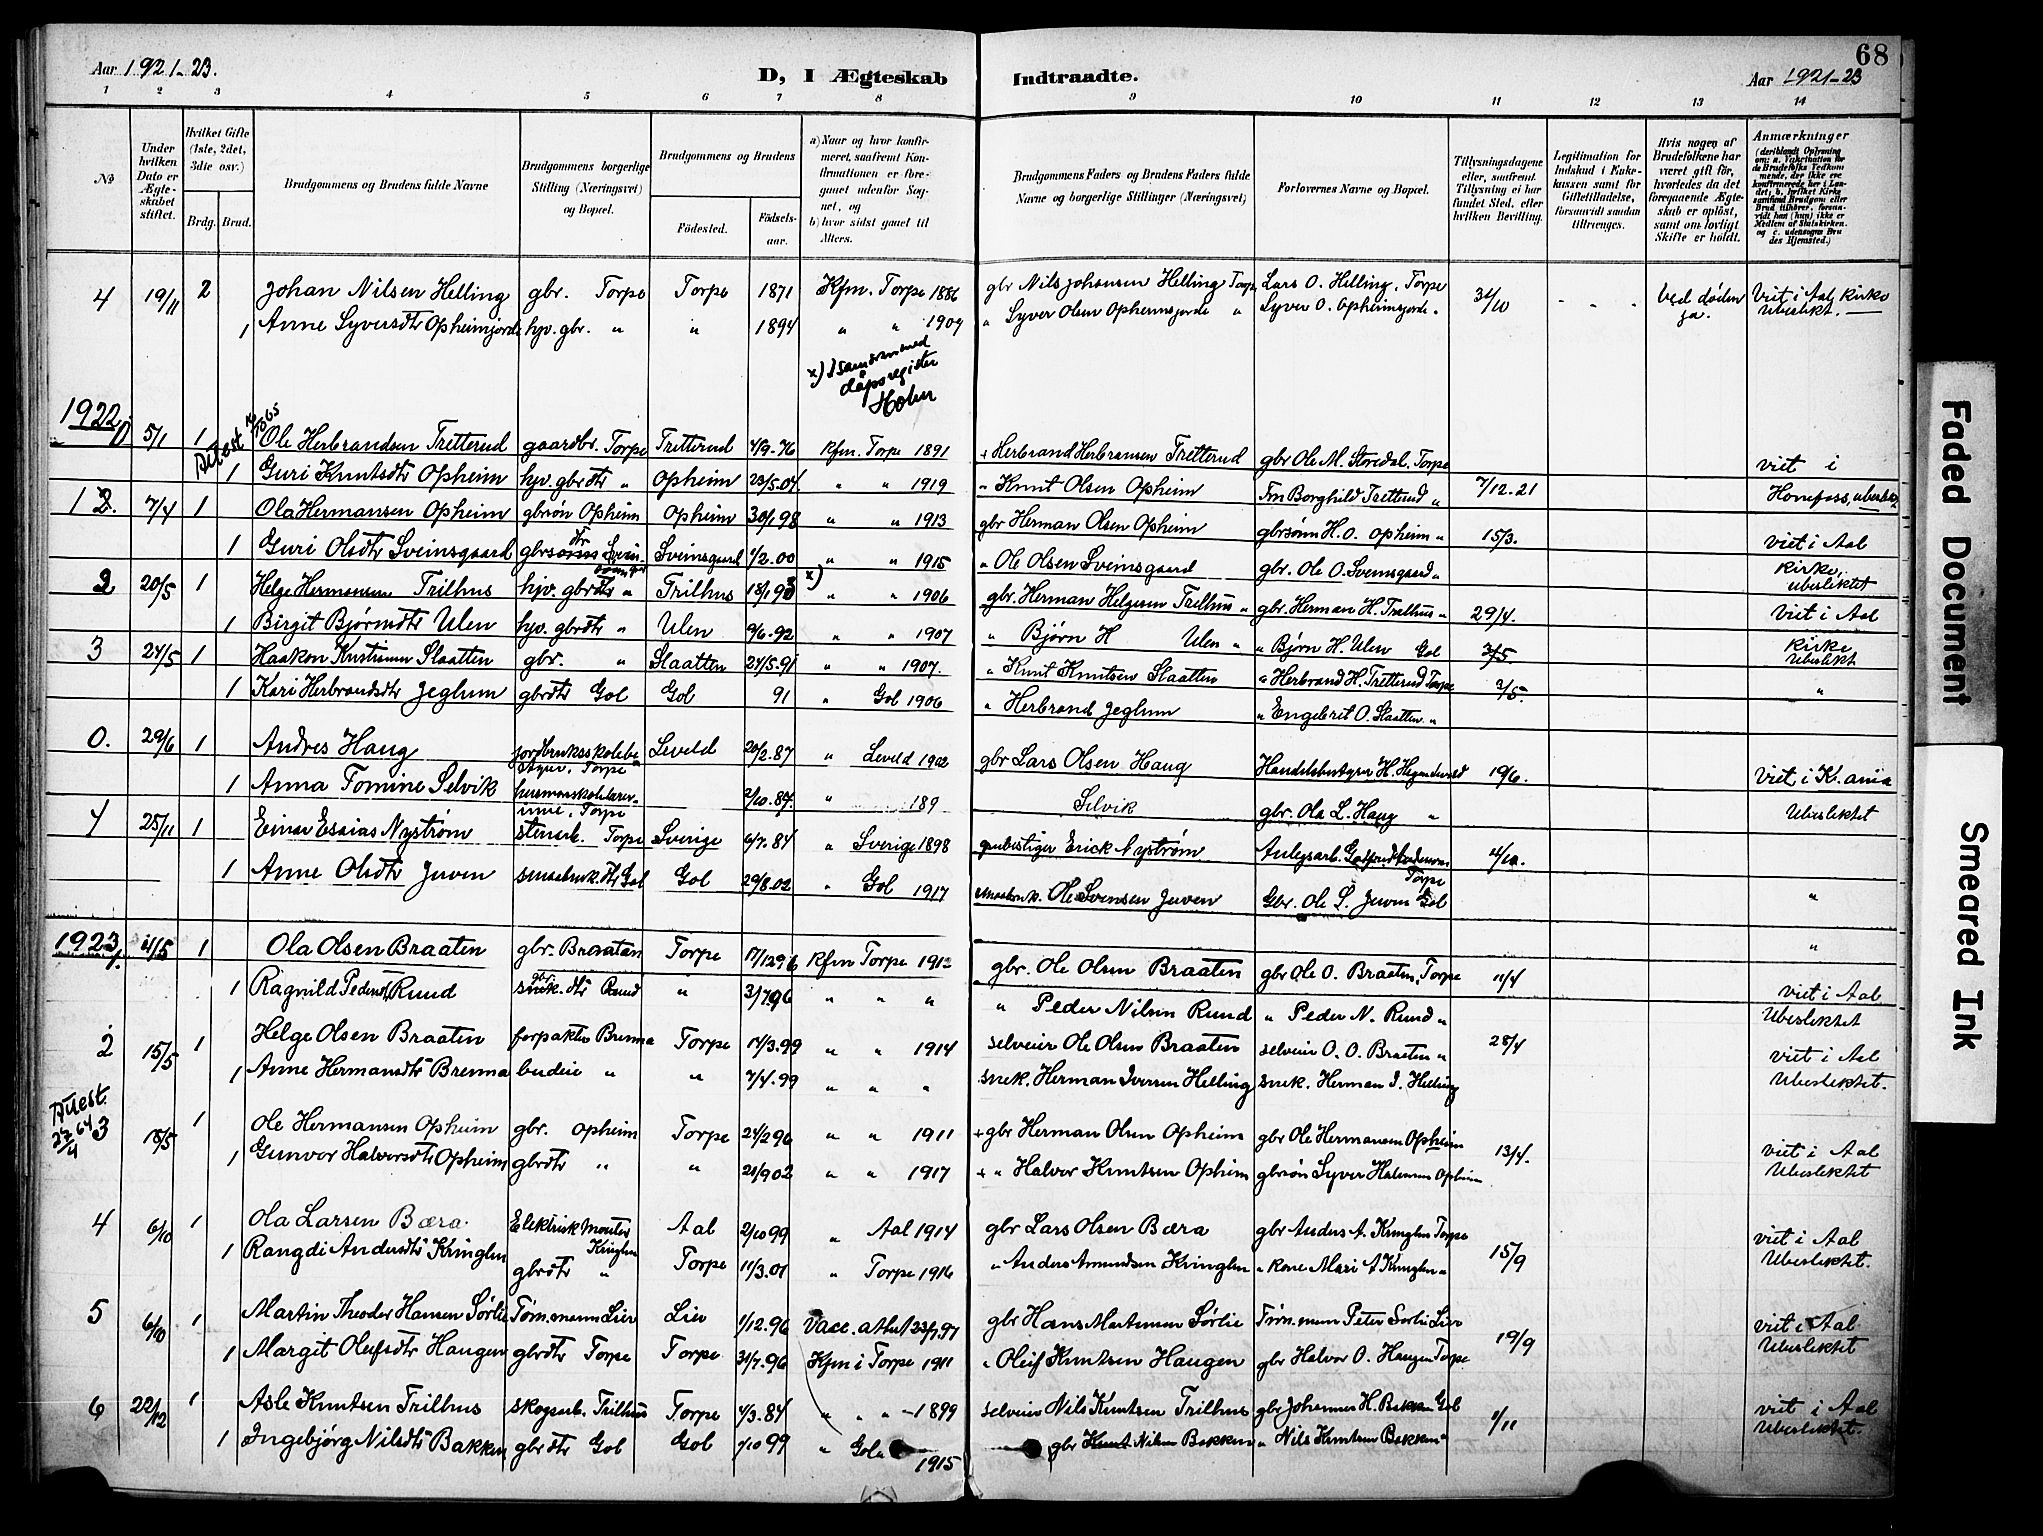 68
Aar 1921-23.
D, I Ægteskab Indtraadte.
Aar 1921-23
1 2 3 4 5 6 7 8 9 10 11 12 13 14
No
Under hvilken Dato er Ægteskabet stiftet.
Hvilket Gifte (1ste, 2det, 3die osv.)
Brdg. Brud.
Brudgommens og Brudens fulde Navne
Brudgommens borgerlige Stilling (Næringsvei) og Bopæl.
Brudgommens og Brudens
Fødested.
Fødselsaar.
a) Naar og hvor konfirmeret, saafremt Konfirmationen er foregaaet udenfor Sognet, og
b) hvor sidst gaaet til Alters.
Brudgommens Faders og Brudens Faders fulde Navne og borgerlige Stillinger (Næringsvei)
Forlovernes Navne og Bopæl.
Tillysningsdagene eller, saafremt Tillysning ei har fundet Sted, efter hvilken Bevilling.
Legitimation for Indskud i Enkekassen samt for Giftetilladelse, forsaavidt saadan tiltrænges.
Hvis nogen af Brudefolkene har været gift før, hvorledes da det foregaaende Ægteskab er opløst, samt om lovligt Skifte er holdt.
Anmærkninger
4 19/11 2 Johan Nilsen Helling gbr. Torpe Torpe 1871 Kfm. Torpe 1886 gbr Nils Johansen Helling Torpe Lars O. Helling, Torpe 31/10 " " " Ved døden ja. Viet i Aal kirke
1 Anne Syversdtr Opheimjorde hjv. gbr. " " 1894 " " 1909 " Syver Olsen Opheimsjorde " Syver O. Opheimsjorde " Ubeslekt.
x) I samsvar med
dåpsregister
Holm
1922
1 5/1 1 Ole Herbrandsen Tretterud gaardbr. Torpe Tretterud 4/9-76 Kfm. Torpe 1891 + Herbrand Herbransen Tretterud gbr Ole M. Storedal. Torpe viet i
Attest
1 Guri Knutsdtr Opheim hjv. gbrdtr " Opheim 23/5.04 " " 1919 " Knut Olsen Opheim Frn Borghild Tretterud " 7/12.21 Honefoss, ubesl.
12. 7/4 1 Ola Hermansen Opheim gbrsøn Opheim Opheim 30/1 98 " " 1913 gbr Herman Olsen Opheim gbrsønn H. O. Opheim " 15/3. viet i Aal
1 Guri Olsdtr Sveinsgaard Sveinsgaard 1/2.00 " " 1915 " Ole Olsen Sveinsgaard gbr. Ole O. Sveinsgaard " kirke, ubesliktet
2 20/5 1 Helge Hermansen Trilhus hjv. gbrdtr " Trilhus 18/1 93 x) " " 1906 gbr. Herman Helgesen Trilhus " gbr. Herman H. Trilhus " 29/4. viet i Aal
1 Birgit Bjørnsdtr Ulen hjv. gbrdtr " Ulen 9/6.92 " " 1907 " Bjørn H Ulen " " Bjørn H. Ulen Gol kirke
3 24/5 1 Haakon Knutsen Slaatten gbr. " Slaatten 24/5.91 " " 1907. " Knut Knutsen Slaatten " Herbrand H. Tretterud Torpe 2/5. Ubeslekt
1 Kari Herbrandsdtr Jeglum gbrdtr Gol Gol 91 " Gol 1906 " Herbrand Jeglum " Engebrit O. Slaatten. " "
0. 29/6 1 Andres Haug jordbruksskolebestyrer. Torpe Leveld 20/2.87 " Leveld 1902 gbr Lars Olsen Haug 19/6. viet i K.ania
1 Anna Tomine Selvik husmorskolelærerinne, Torpe 2/10.87. " 189 Selvik gbr. Ola L. Haug " Ubesliktet
4 25/11 1 Einar Esaias Nystrøm stenarb. Torpe Sverige 6/7.84 " Sverige 1898 grubestiger Erick Nystrøm Torpe
1 Anne Olsdtr Juven smaabruk. dtr Gol Gol 29/8.02 " Gol 1917 smaabruk. Ole Svensen Juven Gbr. Ole S. Juven Gol "
1923
1. 1 Ola Olsen Braaten gbr. Braatan Torpe 17/12 96 Kfm Torpe 1912 gbr. Ole Olsen Braaten gbr Ole O. Braaten, Torpe 11/4 "
1 Ragnild Pedersdtr Ruud Ruud " 3/7 96 " " " " Peder Nilsen Ruud " Peder N. Ruud " viet i Aal Ubesliktet
2 15/5 1 Helge Olsen Braaten forpakter Brenna Torpe 14/3.99 " " 1914 selveier Ole Olsen Braaten selveier O. O. Braaten " 28/4 viet i Aal
1 Anne Hermansdtr Brenna budeie " " 7/4.99 " " " snek. Herman Iversen Helling snek. Herman I. Helling Ubesliktet.
Attest 27/4 64
3 18/5 1 Ole Hermansen Opheim gbr. Opheim Torpe 24/2 96 " " 1911 + gbr Herman Olsen Opheim gbr Ole Hermansen Opheim 13/4. viet i Aal
1 Gunvor Halvorsdtr Opheim gbrdtr " " 21/9 02 " " 1917 + " Halvor Knutsen Opheim gbrsøn Syver Halvorsen Opheim Ubesliktet
4 6/10 1 Ola Larsen Bæra Elektrisk Montør Kringlen Aal 2/10 99 " Aal 1914 gbr Lars Olsen Bæra gbr Anders A. Kringlen Torpe 15/9 viet i Aal
1 Rangdi Andersdtr Kringlen gbrdtr " Torpe 11/3.01 " Torpe 1916 " Anders Amundsen Kringlen " kone Mari A Kringlen " Ubesliktet.
5 6/10 1 Martin Theodor Hansen Sørlie Tøm.mann Lier Lier 1/12.96 Vacc. attest 23/7.97 gbr Hans Martinsen Sørlie Tøm.mann Peter Sørlie Lier 19/9 viet i Aal
1 Margit Olufsdtr Haugen gbrdtr Torpe Torpe 31/7.96 Kfm i Torpe 1911 " Oluf Knutsen Haugen gbr Halvor O. Haugen Torpe Ubesliktet
6 22/12 1 Asle Knutsen Trilhus skogsarb. Trilhus Torpe 4/3.84 " " 1899 selveier Nils Knutsen Trilhus gbr Johannes H. Bakken Gol 1/11 viet i Aal
1 Ingebjørg Nilsdtr Bakken gbrdtr Gol Gol 1/10 99 " Gol 1915 gbr Knut Nilsen Bakken " Nils Knutsen Bakken " Ubesliktet.
Faded Document
Smeared Ink